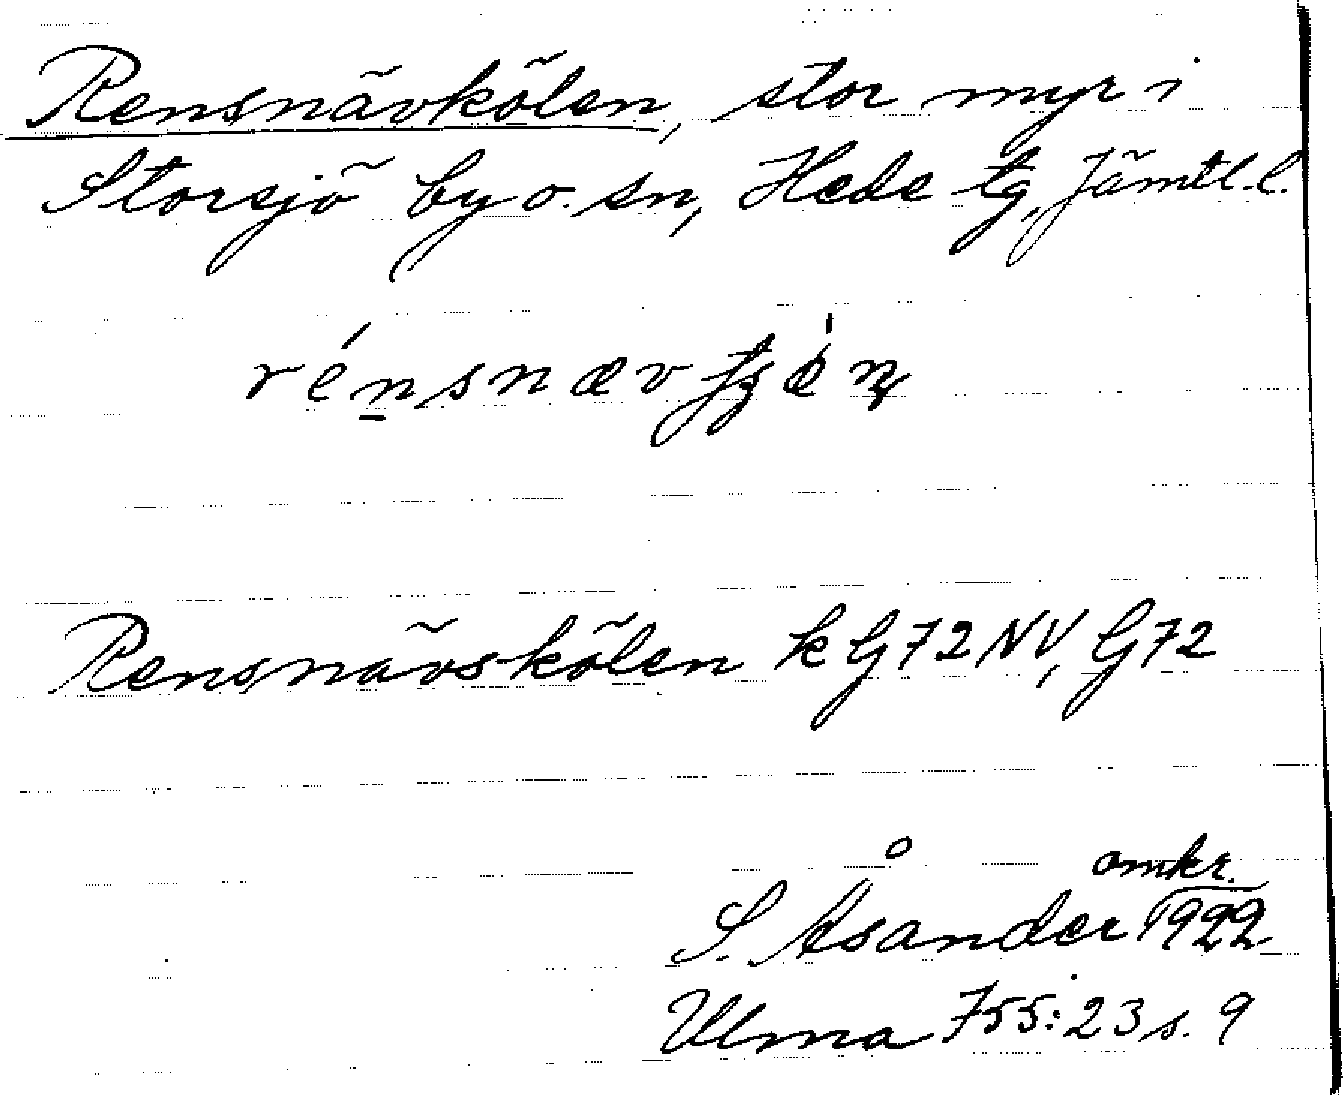 Rensnävkölen, stor myr i
Storsjö by o. sn, Hede tg, Jämtl. l.
Rensnävskölen k G72NV, G72
omkr.
S. Åsander 1922
Ulma 755:23 s. 9